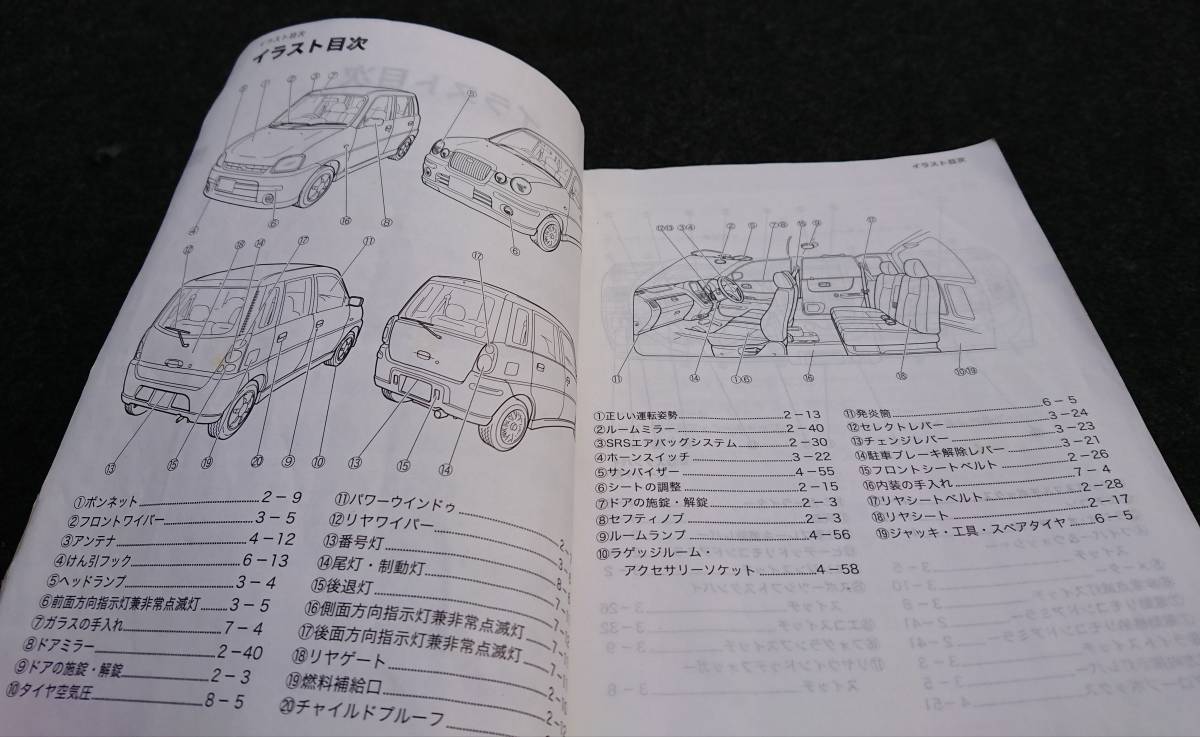 イラスト目次
イラスト目次
①ボンネット 2－9
②フロントワイパー 3－5
③アンテナ 4－12
④けん引フック 6－13
⑤ヘッドランプ 3－4
⑥前面方向指示灯兼非常点滅灯 3－5
⑦ガラスの手入れ 7－4
⑧ドアミラー 2－40
⑨ドアの施錠・解錠 2－3
⑩タイヤ空気圧 8－5
⑪パワーウインドゥ
⑫リヤワイパー
⑬番号灯
⑭尾灯・制動灯
⑮後退灯
⑯側面方向指示灯兼非常点滅灯
⑰後面方向指示灯兼非常点滅灯
⑱リヤゲート
⑲燃料補給口
⑳チャイルドプルーフ
イラスト目次
①正しい運転姿勢 2－13
②ルームミラー 2－40
③SRSエアバッグシステム 2－30
④ホーンスイッチ 3－22
⑤サンバイザー 4－55
⑥シートの調整 2－15
⑦ドアの施錠・解錠 2－3
⑧セフティノブ 2－3
⑨ルームランプ 4－56
⑩ラゲッジルーム・
アクセサリーソケット 4－58
⑪発炎筒 6－5
⑫セレクトレバー 3－24
⑬チェンジレバー 3－23
⑭駐車ブレーキ解除レバー 3－21
⑮フロントシートベルト 2－26
⑯内装の手入れ 7－4
⑰リヤシートベルト 2－28
⑱リヤシート 2－17
⑲ジャッキ・工具・スペアタイヤ 6－5